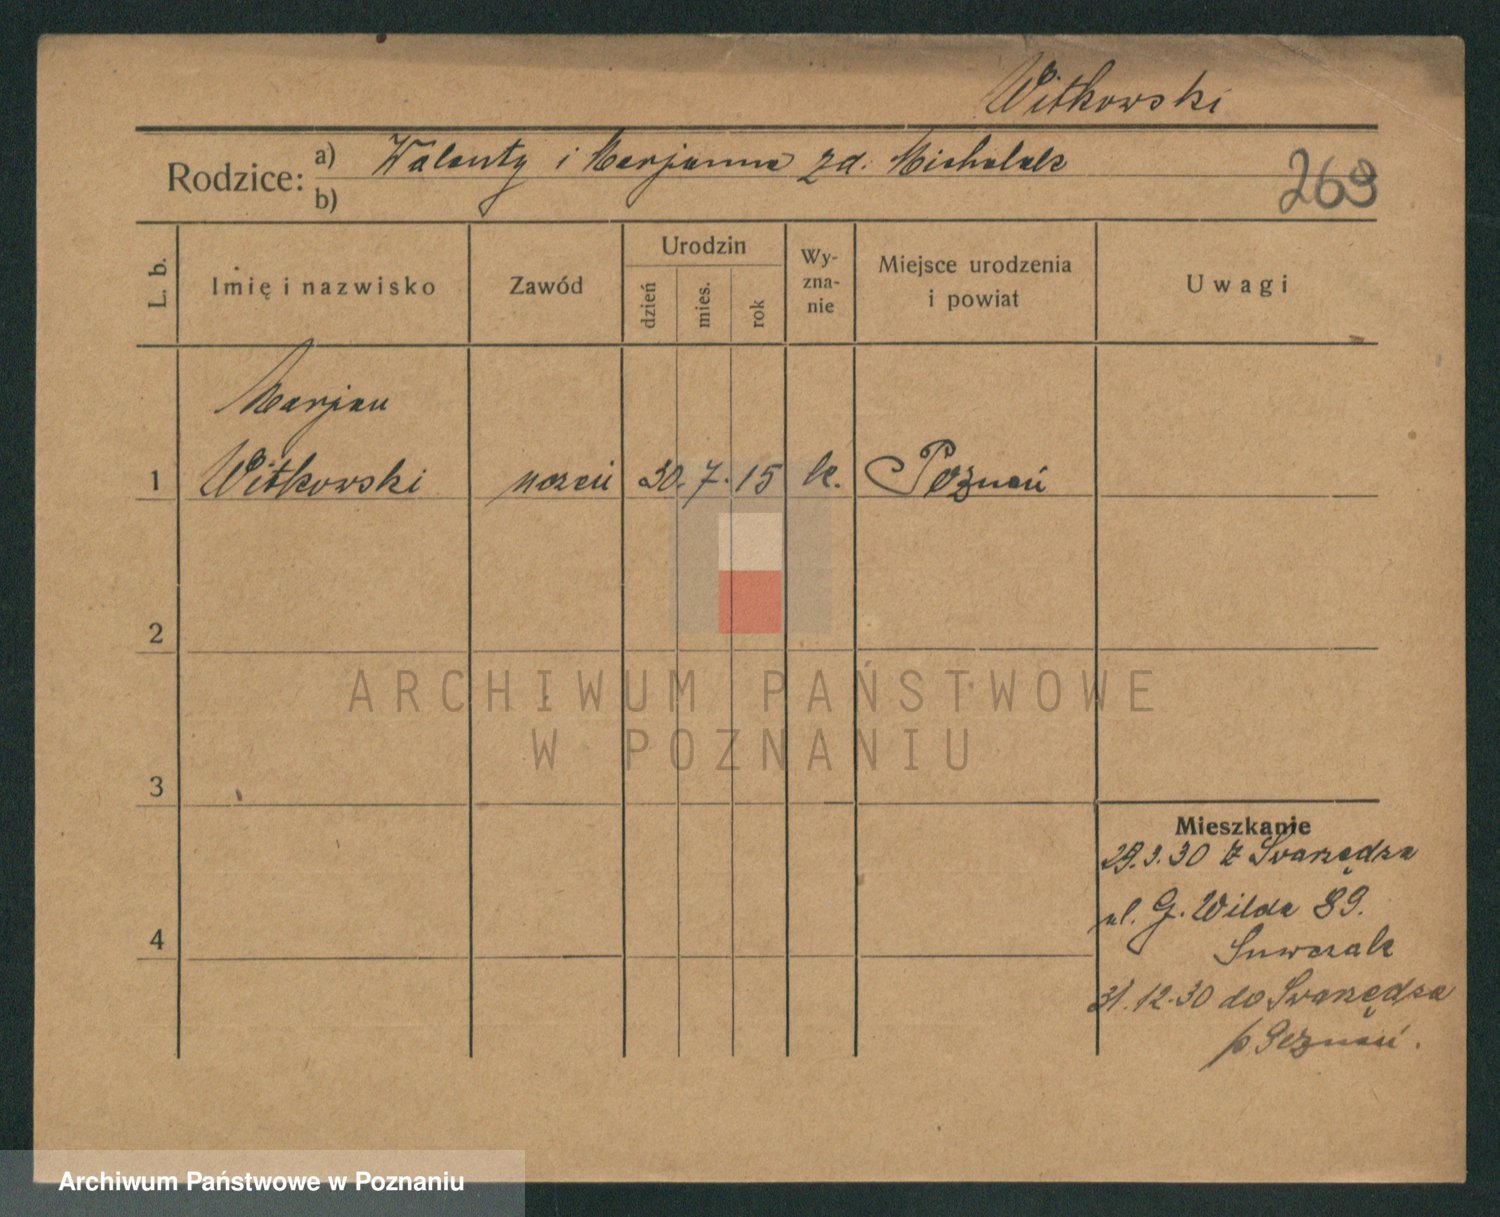 Witkowski
Rodzice: a) Walenty i Marjanna zd. Michalak
b)
269
L. b.
Imię i nazwisko
Zawód
Urodzin
dzień
mies.
rok
Wy-
zna-
nie
Miejsce urodzenia
i powiat
Uwagi
Marjan
1 Witkowski uczeń 30. 7. 15 k. Poznań
2
ARCHIWUM PAŃSTWOWE
W POZNANIU
3
Mieszkanie
29.3.30 z Swarzędza
ul. G. Wilda 89.
4
31.12.30 do Swarzędza
p Poznań.
Archiwum Państwowe w Poznaniu